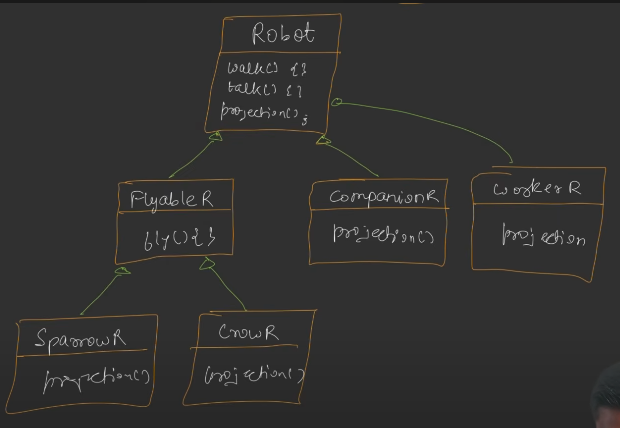 Robot
walk() {}
talk() {}
projection();
FlyableR
fly(){}
CompanionR
projection()
workerR
projection
SparrowR
projection()
CrowR
projection()